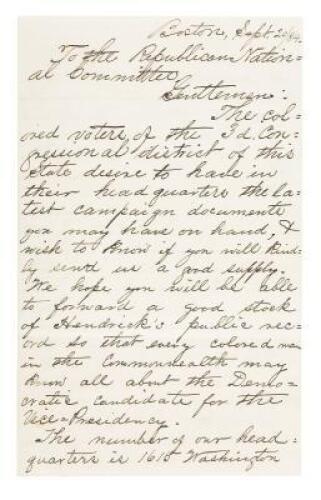 Boston, Sept. 20/84.
To the Republican Nation=
al Committee,
Gentlemen:
The col=
ored voters, of the 3d. Con=
gressional district of this
State desire to have in
their head quarters the la=
test campaign documents
you may have on hand, &
wish to know if you will kind=
ly send us a good supply.
We hope you will be able
to forward a good stock
of Hendrick's public rec=
ord so that every colored man
in the Commonwealth may
know all about the Demo=
cratic candidate for the
Vice=Presidency.
The number of our head=
quarters is 1615 Washington